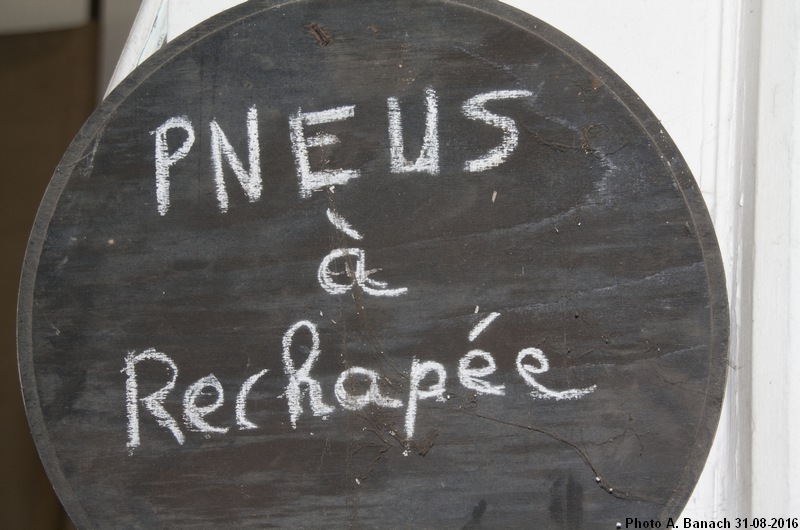 PNEUS
à
Rechapée
Photo A. Banach 31-08-2016